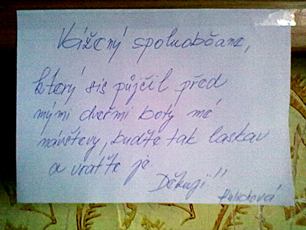 Vážený spoluobčane,
který sis půjčil před
mými dveřmi boty mé
návštěvy, buďte tak laskav
a vraťte je
Děkuji!!